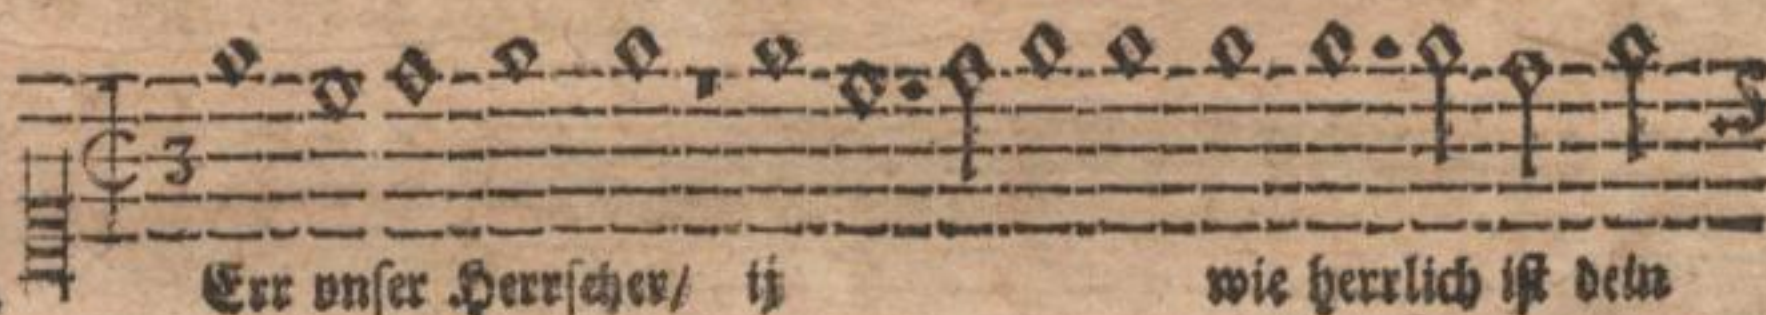 3
Err vnser Herrscher/ ij wie herrlich ist dein